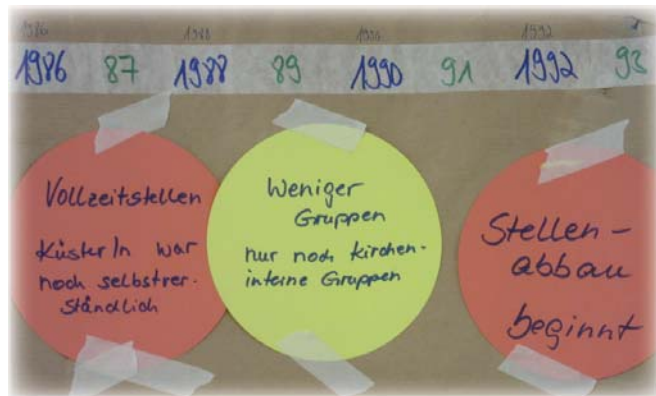 1986 1988 1990 1992
1986 87 1988 89 1990 91 1992 93
Vollzeitstellen
KüsterIn war
noch selbstver-
ständlich
Weniger
Gruppen
nur noch kirchen-
interne Gruppen
Stellen-
abbau
beginnt